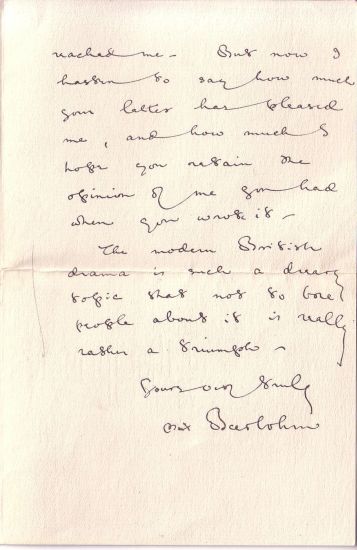 reached me – But now I
hasten to say how much
your letter has pleased
me, and how much I
hope you retain the
opinion of me you had
when you wrote it –
The modern British
drama is such a dreary
topic that not to bore
people about it is really
rather a triumph –
Yours very truly
Max Beerbohm